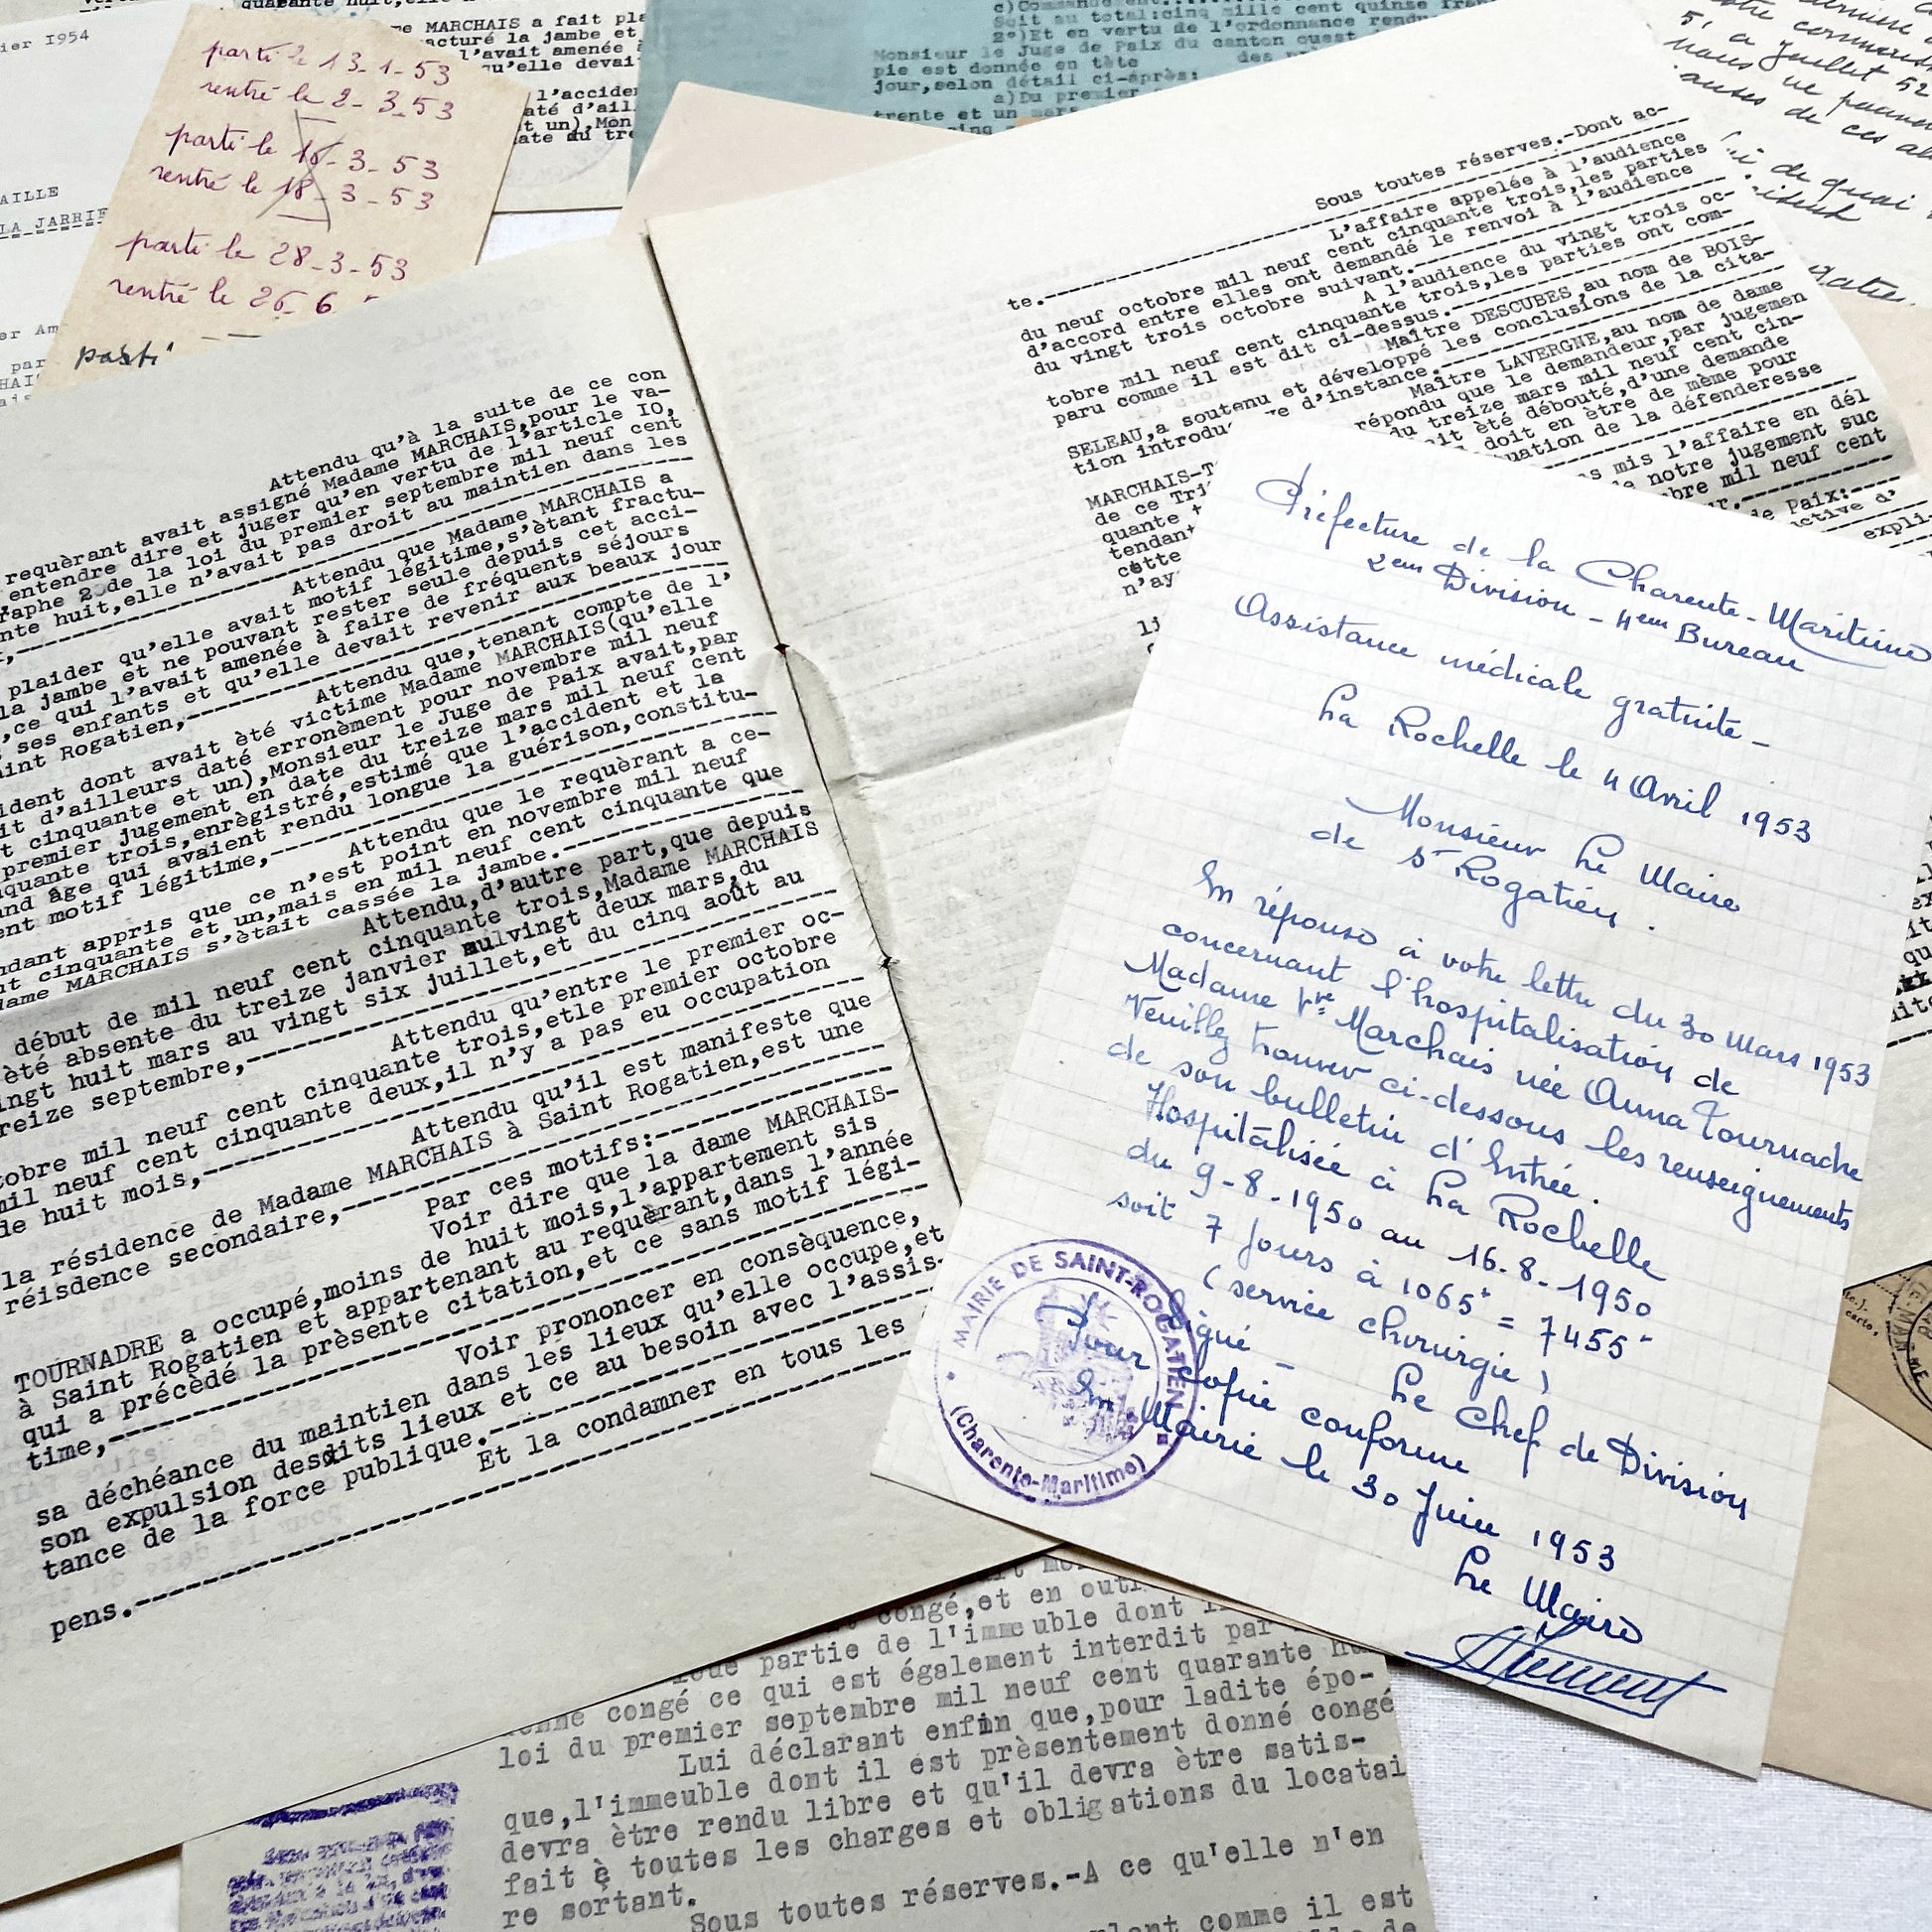 ier 1954
AILLE
LA JARRIE
parti le 13-1-53
rentré le 2-3-53
parti le 16-3-53
rentré le 18-3-53
parti le 28-3-53
rentré le 26-6
parti
quarante huit, elle
me MARCHAIS a fait pla
acturé la jambe et
l'avait amenée à
qu'elle devait
l'accident
daté d'ail
t un),Mon
date du tre
Soit au total:cinq mille cent quinze fran
2°)Et en vertu de l'ordonnance rendu
Monsieur le Juge de Paix du canton ouest
pie est donnée en tête des
jour,selon détail ci-après:
a)Du premier
trente et un mars
Attendu qu'à la suite de ce con
requèrant avait assigné Madame MARCHAIS,pour le va-
entendre dire et juger qu'en vertu de l'article IO,
raphe 2 de la loi du premier septembre mil neuf cent
nte huit,elle n'avait pas droit au maintien dans les
Attendu que Madame MARCHAIS a
plaider qu'elle avait motif légitime,s'ètant fractu-
la jambe et ne pouvant rester seule depuis cet acci-
,ce qui l'avait amenée à faire de fréquents séjours
ses enfants et qu'elle devait revenir aux beaux jour
aint Rogatien,
Attendu que,tenant compte de l'
ident dont avait été victime Madame MARCHAIS(qu'elle
it d'ailleurs daté erronèment pour novembre mil neuf
t cinquante et un),Monsieur le Juge de Paix avait,par
premier jugement en date du treize mars mil neuf cent
quante trois,enrègistré,estimé que l'accident et la
nd âge qui avaient rendu longue la guérison,constitu-
ent motif légitime,
Attendu que le requèrant a ce-
ndant appris que ce n'est point en novembre mil neuf
nt cinquante et un,mais en mil neuf cent cinquante que
dame MARCHAIS s'était cassée la jambe.
Attendu,d'autre part,que depuis
début de mil neuf cent cinquante trois,Madame MARCHAIS
été absente du treize janvier au vingt deux mars,du
ingt huit mars au vingt six juillet,et du cinq août au
reize septembre,
Attendu qu'entre le premier oc-
tobre mil neuf cent cinquante trois,etle premier octobre
mil neuf cent cinquante deux,il n'y a pas eu occupation
de huit mois,
Attendu qu'il est manifeste que
la résidence de Madame MARCHAIS à Saint Rogatien,est une
réisdence secondaire,
Par ces motifs:
Voir dire que la dame MARCHAIS-
TOURNADRE a occupé,moins de huit mois,l'appartement sis
à Saint Rogatien et appartenant au requèrant,dans l'année
qui a précèdé la prèsente citation,et ce sans motif légi-
time,
Voir prononcer en consèquence,
sa déchéance du maintien dans les lieux qu'elle occupe,et
son expulsion desdits lieux et ce au besoin avec l'assis-
tance de la force publique.
Et la condamner en tous les
pens.
Sous toutes réserves.-Dont ac-
te.
L'affaire appelée à l'audience
du neuf octobre mil neuf cent cinquante trois,les parties
d'accord entre elles ont demandé le renvoi à l'audience
du vingt trois octobre suivant.
A l'audience du vingt trois oc-
tobre mil neuf cent cinquante trois,les parties ont com-
paru comme il est dit ci-dessus.
Maître DESCUBES,au nom de BOIS-
SELEAU,a soutenu et développé les conclusions de la cita-
tion introduc e d'instance.
Maître LAVERGNE,au nom de dame
MARCHAIS-T répondu que le demandeur,par jugemen
de ce Tri du treize mars mil neuf cent cin-
quante ait été débouté,d'une demande
tendant doit en être de même pour
cette uation de la défenderesse
n'ay
ns mis l'affaire en dél
notre jugement suc
bre mil neuf cent
de Paix:
expli-
Préfecture de la Charente-Maritime
2em Division - 4em Bureau
Assistance médicale gratuite -
La Rochelle le 4 Avril 1953
Monsieur Le Maire
de St Rogatien.
En réponse à votre lettre du 30 Mars 1953
concernant l'hospitalisation de
Madame Vve Marchais née Anna Tournadre
Veuillez trouver ci-dessous les renseignements
de son bulletin d'Entrée.
Hospitalisée à La Rochelle
du 9-8-1950 au 16-8-1950
soit 7 jours à 1065 = 7455
(service chirurgie)
Signé - Le Chef de Division
Pour copie conforme
En Mairie le 30 Juin 1953
Le Maire
MAIRIE DE SAINT-ROGATIEN
(Charente-Maritime)
congé,et en outr
partie de l'immeuble dont
congé ce qui est également interdit par
loi du premier septembre mil neuf cent quarante
Lui déclarant enfin que,pour ladite épo-
que,l'immeuble dont il est prèsentement donné congé
devra ètre rendu libre et qu'il devra ètre satis-
fait è toutes les charges et obligations du locatai
re sortant.
Sous toutes réserves.-A ce qu'elle n'en
comme il est